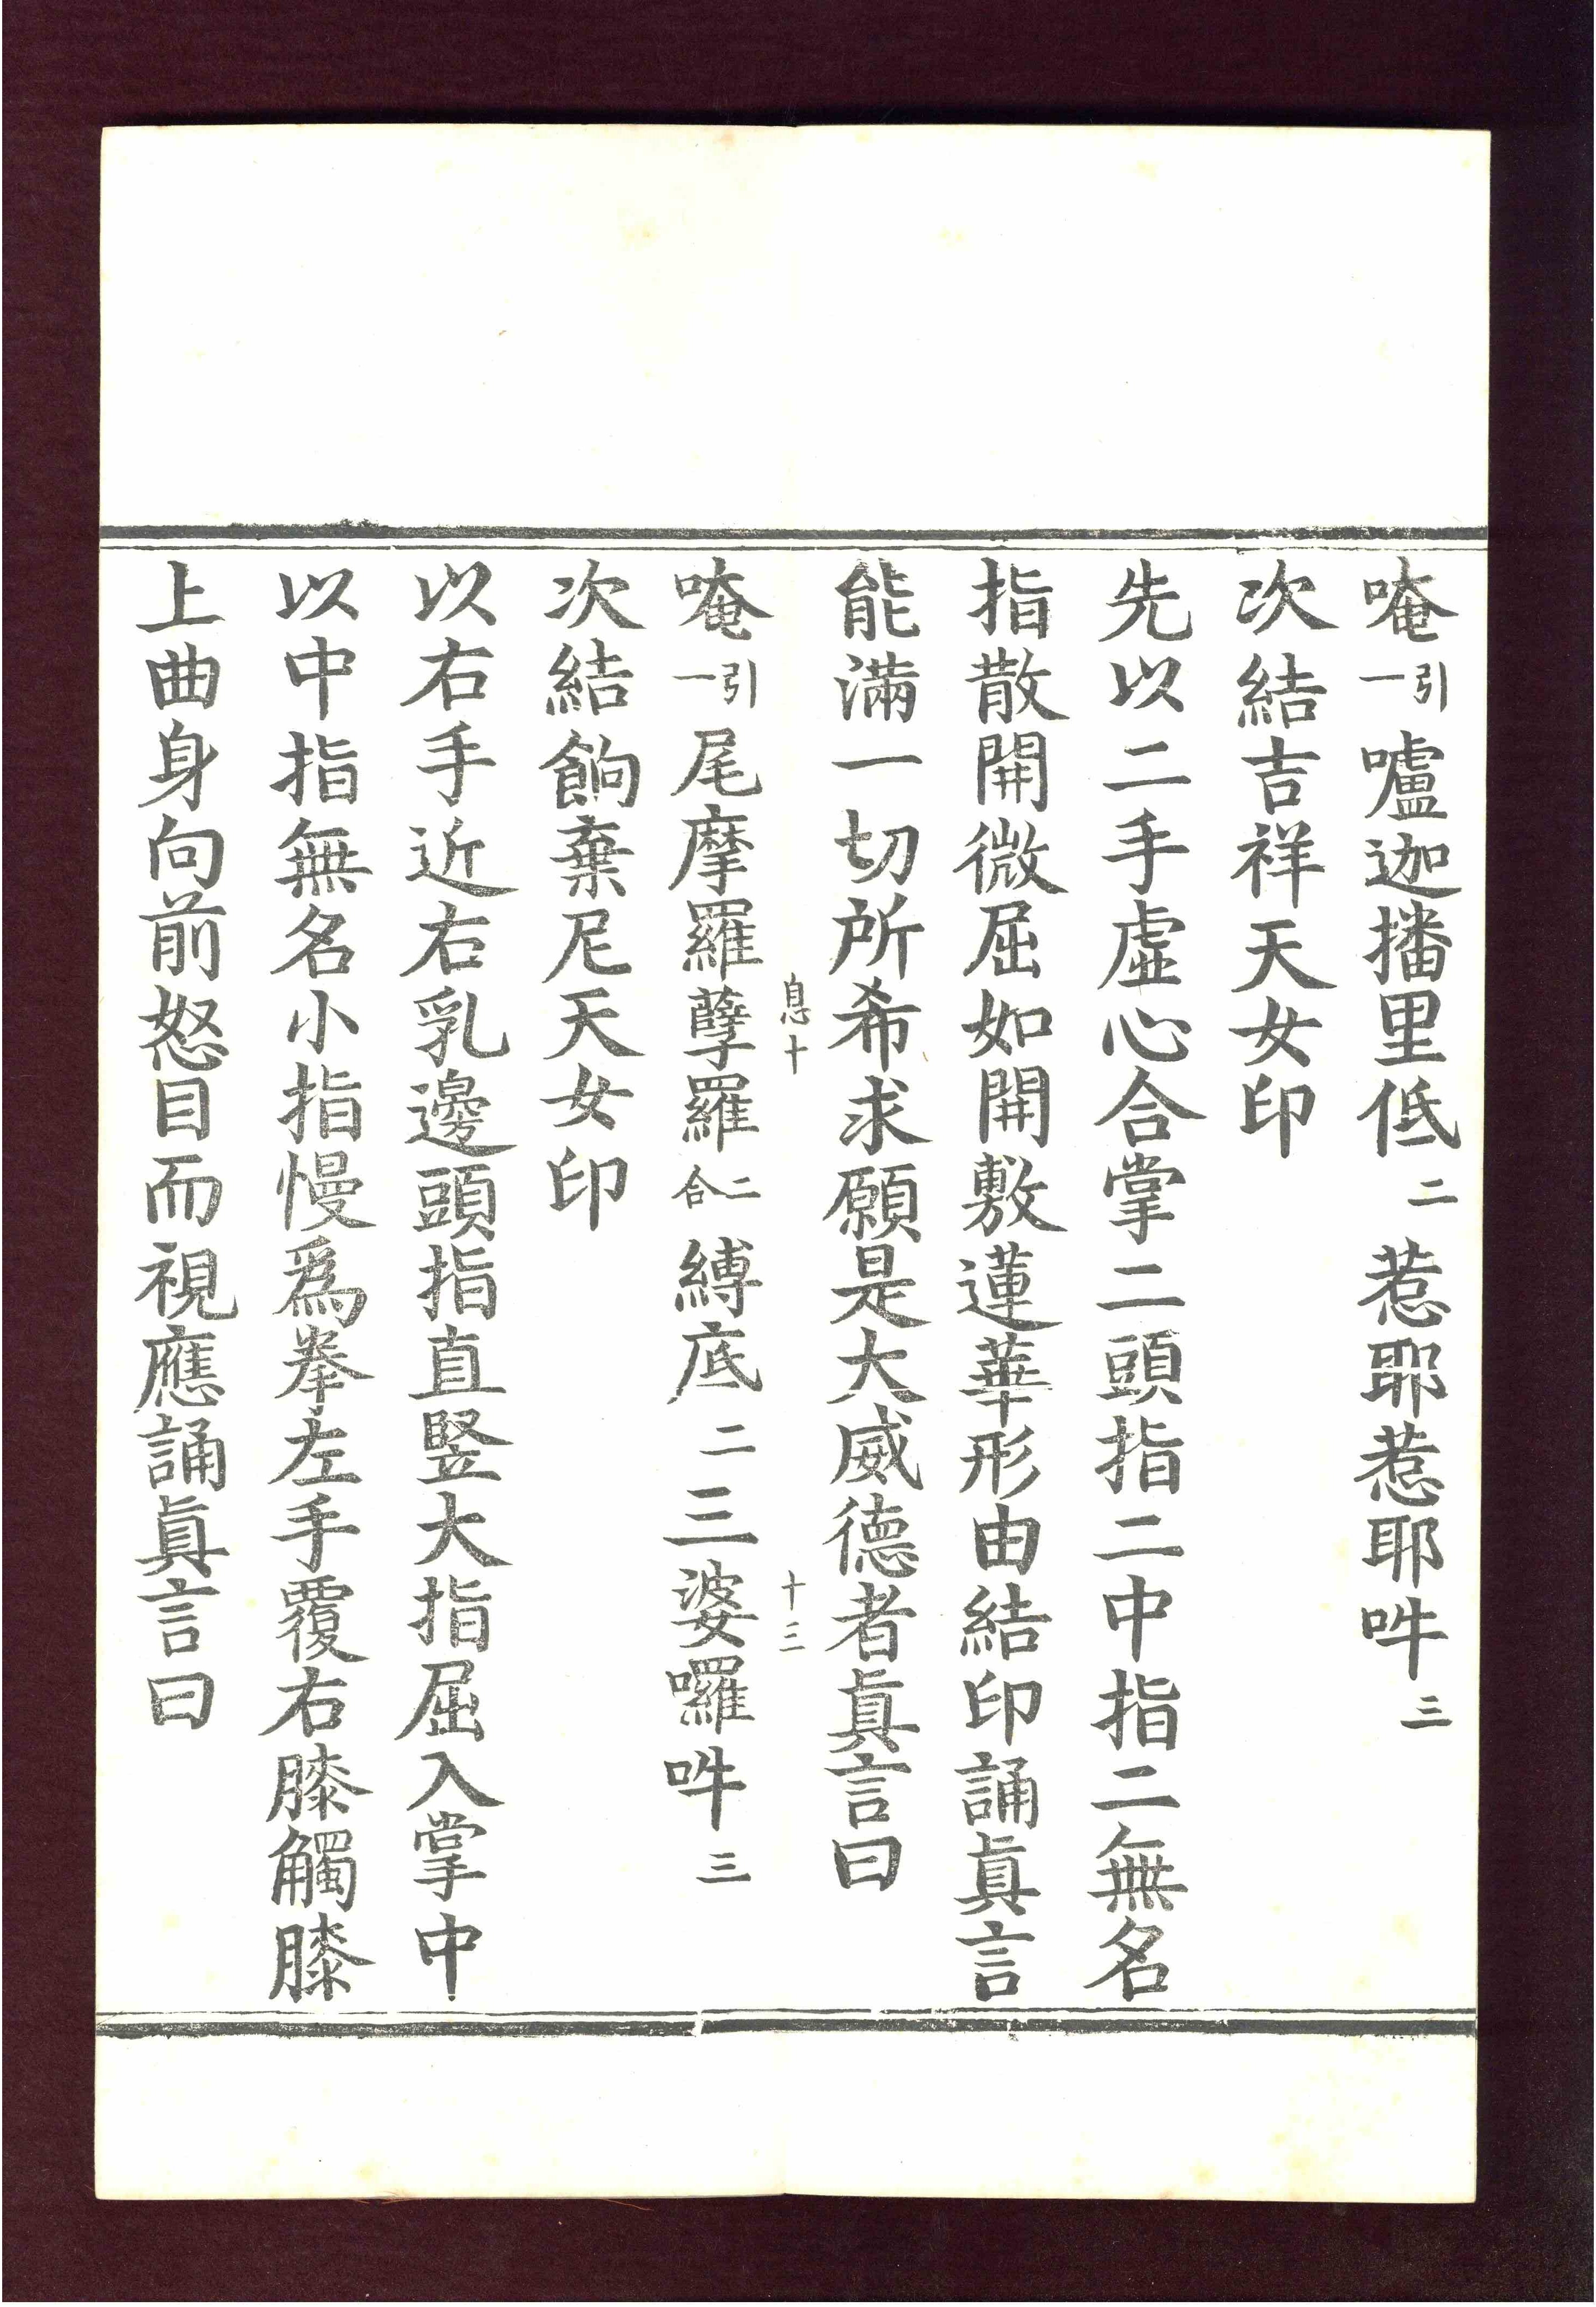 唵引一嚧迦播里低二惹耶惹耶吽三
次結吉祥天女印
先以二手虛心合掌二頭指二中指二無名
指散開微屈如開敷蓮華形由結印誦真言
能滿一切所希求願是大威德者真言曰
息十 十三
唵引一尾摩羅孽羅二合縛底二三婆囉吽三
次結餉棄尼天女印
以右手近右乳邊頭指直竪大指屈入掌中
以中指無名小指慢為拳左手覆右膝觸膝
上曲身向前怒目而視應誦真言曰